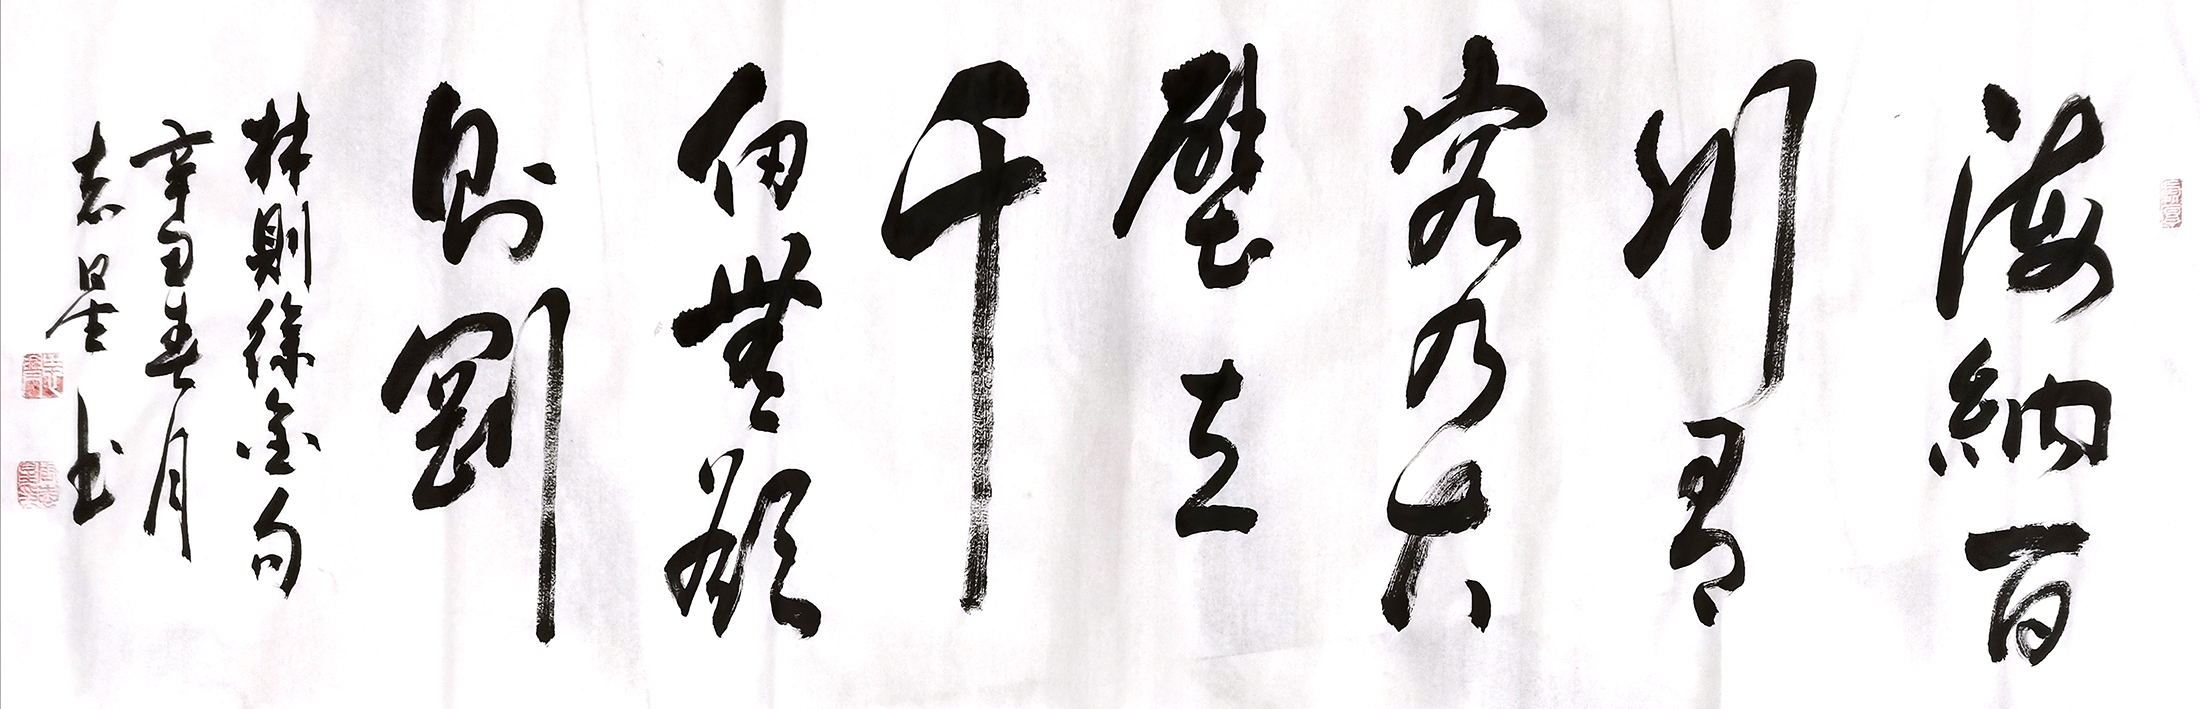 海納百
川有
容乃大
壁立
千
仞無欲
則剛
林則徐金句
辛丑春月
志星书